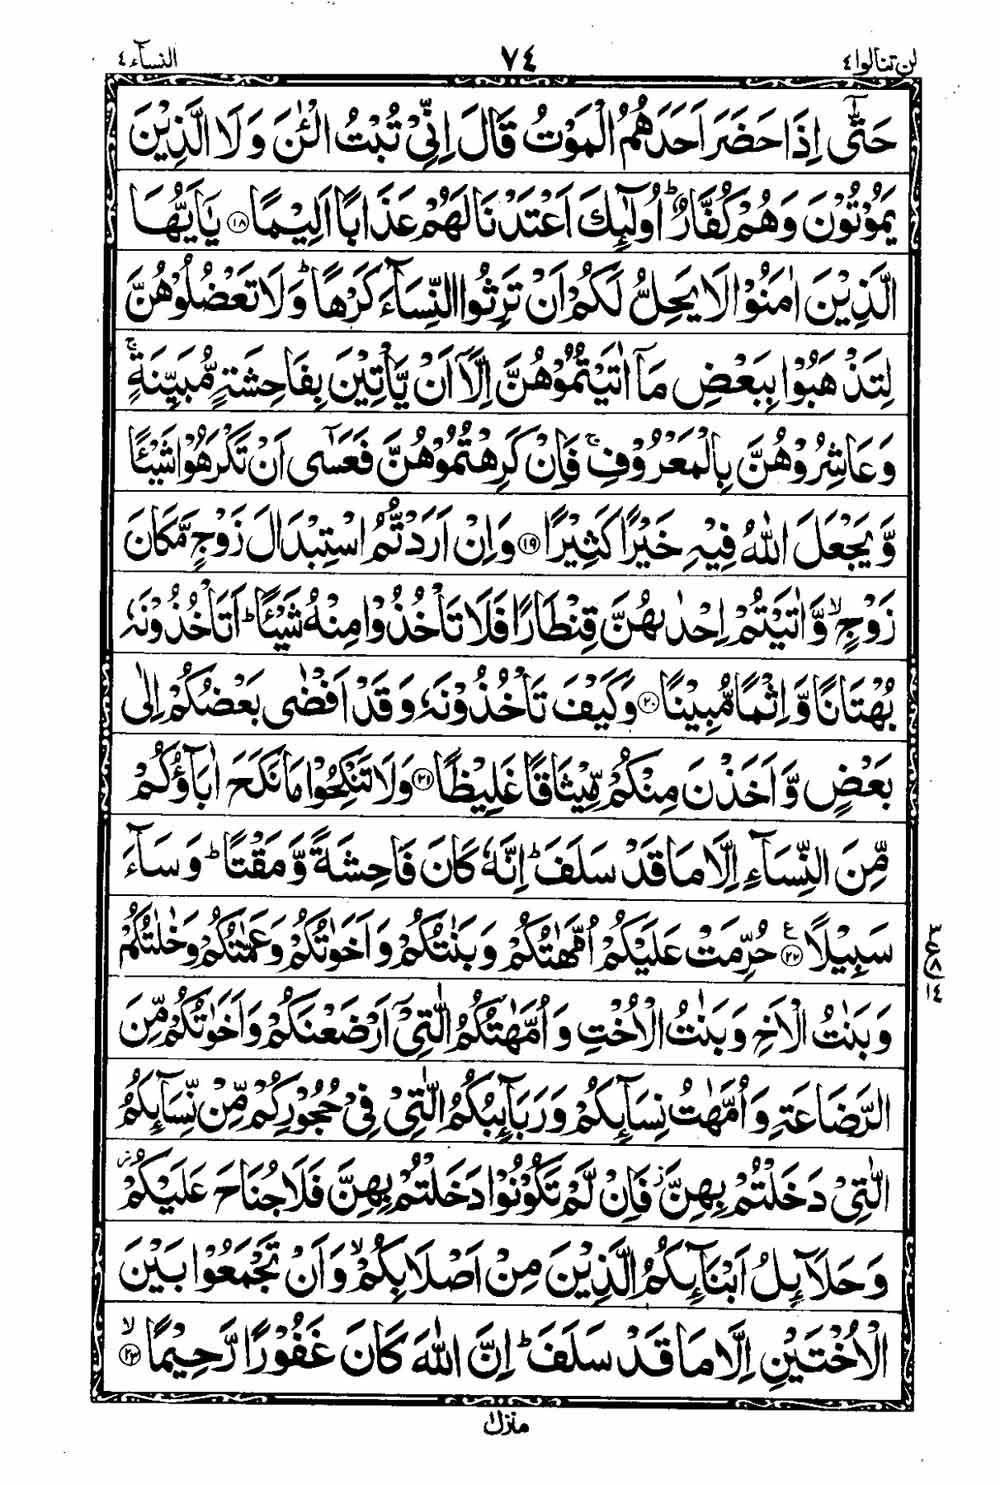 لن تنالوا ٤ ٧٤ النسآء ٤
حَتّٰۤى اِذَا حَضَرَ اَحَدَهُمُ الْمَوْتُ قَالَ اِنِّیْ تُبْتُ الْئٰنَ وَ لَا الَّذِیْنَ
یَمُوْتُوْنَ وَ هُمْ كُفَّارٌ ؕ اُولٰٓئِكَ اَعْتَدْنَا لَهُمْ عَذَابًا اَلِیْمًا ۝۱۸ یٰۤاَیُّهَا
الَّذِیْنَ اٰمَنُوْا لَا یَحِلُّ لَكُمْ اَنْ تَرِثُوا النِّسَآءَ كَرْهًا ؕ وَ لَا تَعْضُلُوْهُنَّ
لِتَذْهَبُوْا بِبَعْضِ مَاۤ اٰتَیْتُمُوْهُنَّ اِلَّاۤ اَنْ یَّاْتِیْنَ بِفَاحِشَةٍ مُّبَیِّنَةٍ ۚ
وَ عَاشِرُوْهُنَّ بِالْمَعْرُوْفِ ۚ فَاِنْ كَرِهْتُمُوْهُنَّ فَعَسٰۤى اَنْ تَكْرَهُوْا شَیْئًا
وَّ یَجْعَلَ اللّٰهُ فِیْهِ خَیْرًا كَثِیْرًا ۝۱۹ وَ اِنْ اَرَدْتُّمُ اسْتِبْدَالَ زَوْجٍ مَّكَانَ
زَوْجٍ ۙ وَّ اٰتَیْتُمْ اِحْدٰىهُنَّ قِنْطَارًا فَلَا تَاْخُذُوْا مِنْهُ شَیْئًا ؕ اَتَاْخُذُوْنَهٗ
بُهْتَانًا وَّ اِثْمًا مُّبِیْنًا ۝۲۰ وَ كَیْفَ تَاْخُذُوْنَهٗ وَ قَدْ اَفْضٰى بَعْضُكُمْ اِلٰى
بَعْضٍ وَّ اَخَذْنَ مِنْكُمْ مِّیْثَاقًا غَلِیْظًا ۝۲۱ وَ لَا تَنْكِحُوْا مَا نَكَحَ اٰبَآؤُكُمْ
مِّنَ النِّسَآءِ اِلَّا مَا قَدْ سَلَفَ ؕ اِنَّهٗ كَانَ فَاحِشَةً وَّ مَقْتًا ؕ وَ سَآءَ
سَبِیْلًا ۝۲۲ ع حُرِّمَتْ عَلَیْكُمْ اُمَّهٰتُكُمْ وَ بَنٰتُكُمْ وَ اَخَوٰتُكُمْ وَ عَمّٰتُكُمْ وَ خٰلٰتُكُمْ
٣ ع ٨ ١٤
وَ بَنٰتُ الْاَخِ وَ بَنٰتُ الْاُخْتِ وَ اُمَّهٰتُكُمُ الّٰتِیْۤ اَرْضَعْنَكُمْ وَ اَخَوٰتُكُمْ مِّنَ
الرَّضَاعَةِ وَ اُمَّهٰتُ نِسَآئِكُمْ وَ رَبَآئِبُكُمُ الّٰتِیْ فِیْ حُجُوْرِكُمْ مِّنْ نِّسَآئِكُمُ
الّٰتِیْ دَخَلْتُمْ بِهِنَّ ؗ فَاِنْ لَّمْ تَكُوْنُوْا دَخَلْتُمْ بِهِنَّ فَلَا جُنَاحَ عَلَیْكُمْ ؗ
وَ حَلَآئِلُ اَبْنَآئِكُمُ الَّذِیْنَ مِنْ اَصْلَابِكُمْ ۙ وَ اَنْ تَجْمَعُوْا بَیْنَ
الْاُخْتَیْنِ اِلَّا مَا قَدْ سَلَفَ ؕ اِنَّ اللّٰهَ كَانَ غَفُوْرًا رَّحِیْمًا ۝۲۳ ۙ
منزل